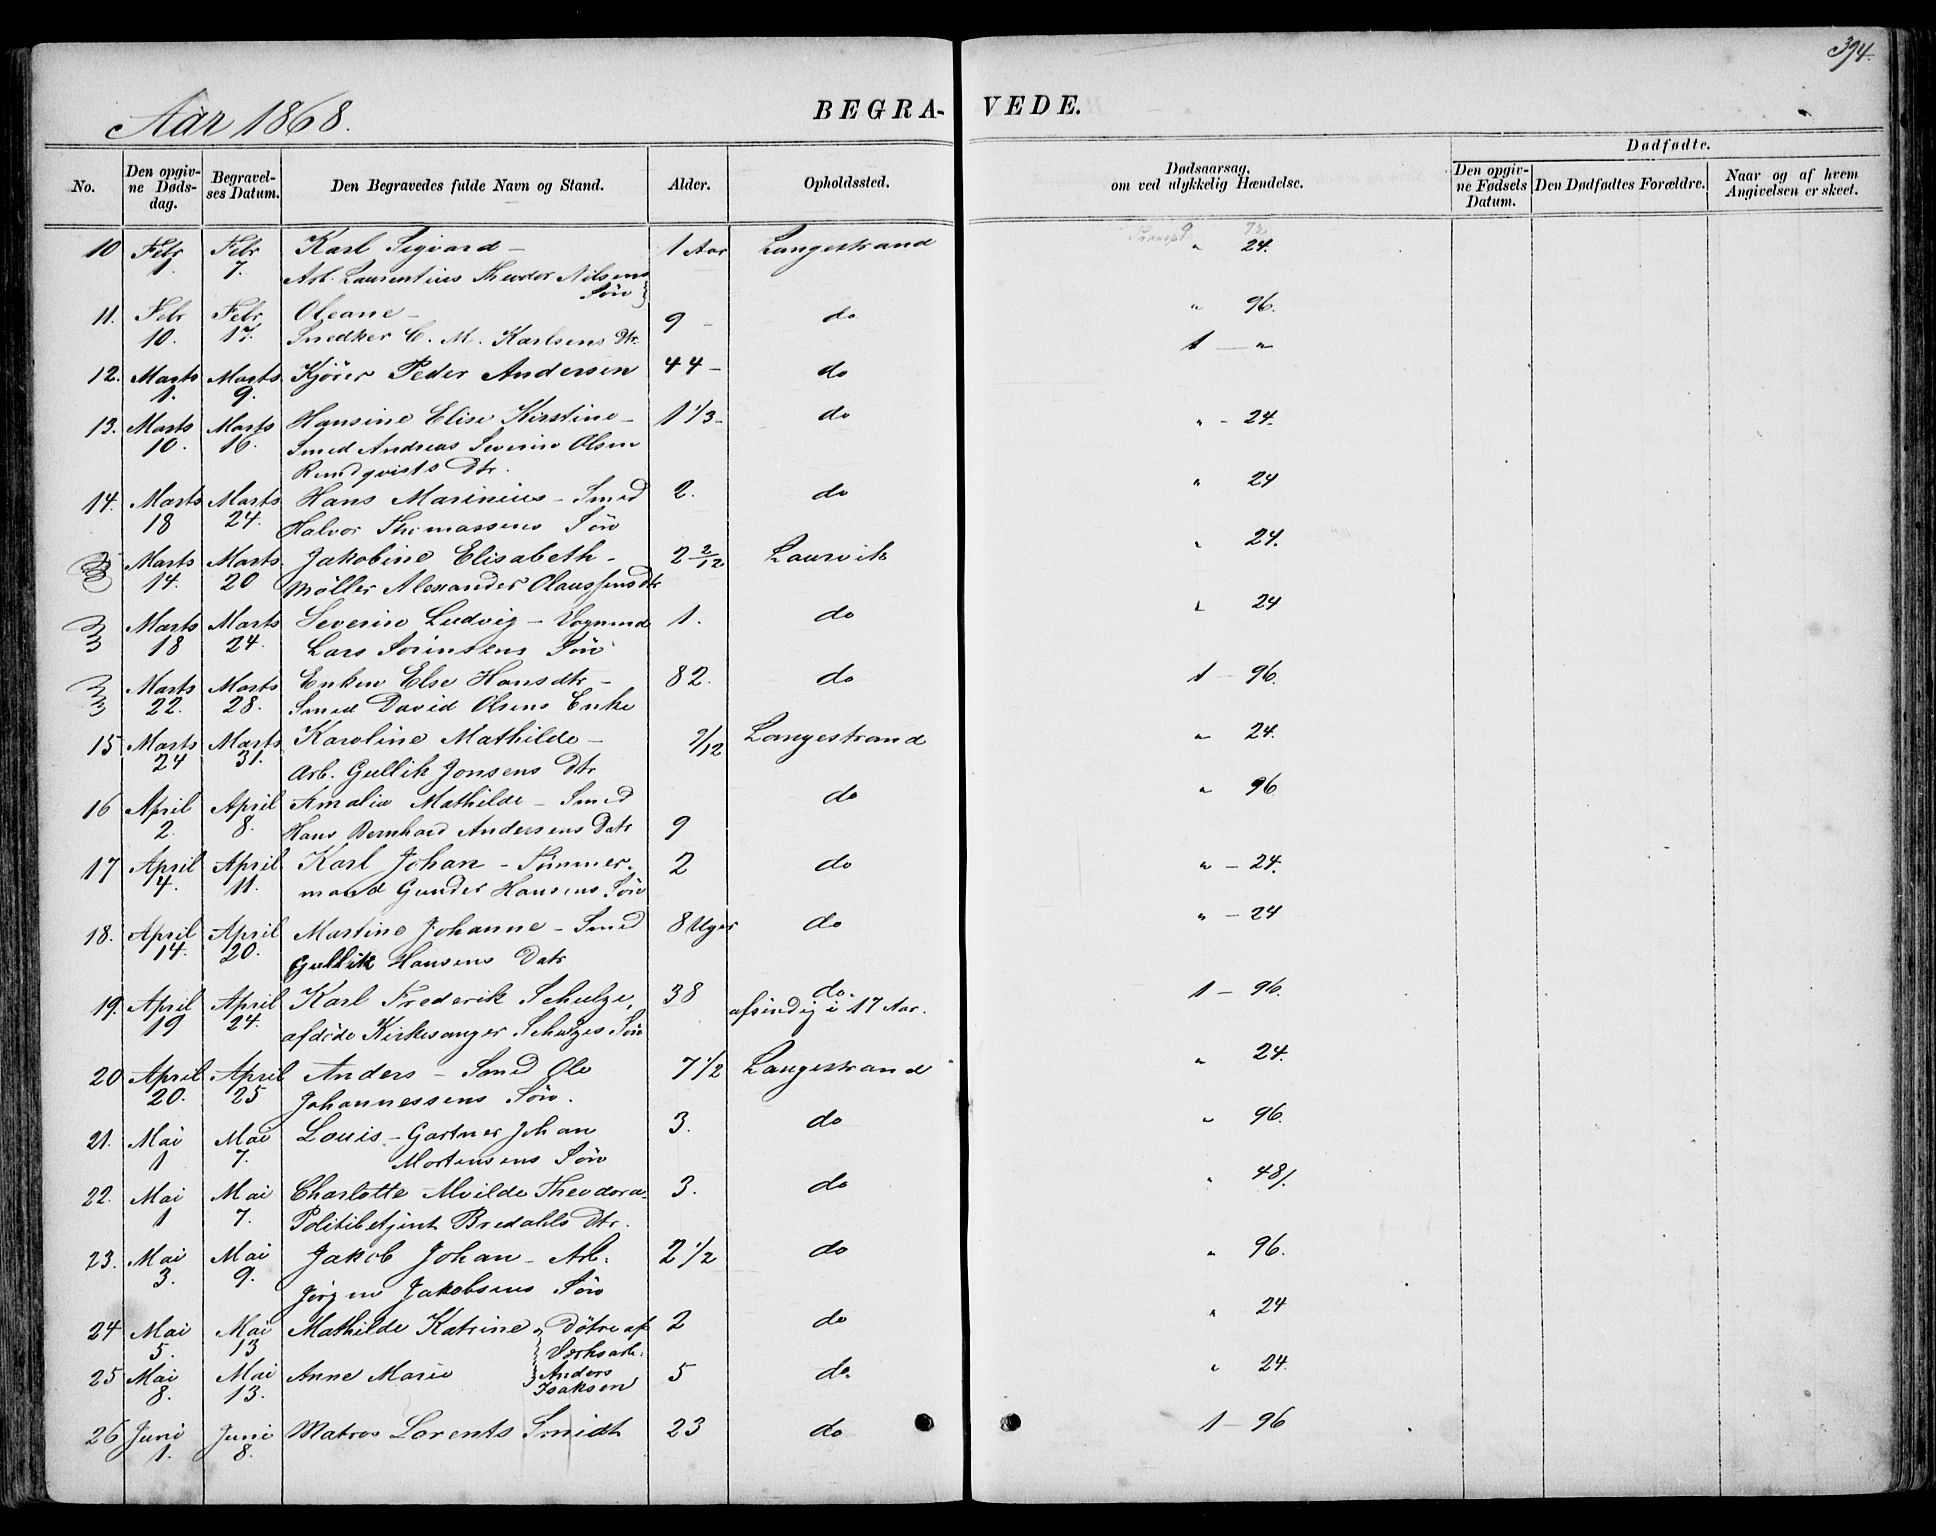 394.
Aar 1868.
BEGRA- VEDE.
No.
Den opgiv-
ne Døds-
dag.
Begravel-
ses Datum.
Den Begravedes fulde Navn og Stand.
Alder.
Opholdssted.
Dødsaarsag,
om ved ulykkelig Hændelse.
Dødfødte.
Den opgiv-
ne Fødsels
Datum.
Den Dødfødtes Forældre.
Naar og af hvem
Angivelsen er skeet.
10 Febr 1. Febr 7. Karl Sigvard – 1 Aar Langestrand " 24.
Arb. Laurentius Theodor Nilsens
Søn
11. Febr 10. Febr 17. Oleane – 9 – do " 96.
Snedker C. M. Karlsens Dtr.
12. Marts 1. Marts 9. Kjører Peder Andersen 44 – do 1 – "
13. Marts 10. Marts 16. Hansine Elise Kirstine – 1 1/3 – do " – 24.
Smed Andreas Severin Olsen
Rundqvists Dtr.
14. Marts 18 Marts 24. Hans Marinius – Smed 2. do " 24
Halvor Thomassens Søn
Marts 14. Marts 20 Jakobine Elisabeth – 2 2/12 Laurvik " 24.
Møller Alexander Olaussens Dtr
Marts 18 Marts 24. Severin Ludvig – Vognmd 1. do " 24
Lars Sørensens Søn
Marts 22. Marts 28. Enken Else Hansdtr – 82. do 1 – 96.
Smed David Olsens Enke
15 Marts 24 Marts 31. Karoline Mathilde – 9/12 Langestrand " 24.
Arb. Gullik Jonsens Dtr
16 April 2. April 8. Amalia Mathilde – Smed do " 96
Hans Bernhard Andersens Datr 9
17 April 4. April 11. Karl Johan – Tømmer- 2 do " – 24.
mand Gunder Hansens Søn
18. April 14. April 20. Martine Johanne – Smed 8 Uger do " – 24
Gullik Hansens Datr
19. April 19 April 24. Karl Frederik Schulze, 38 do. 1 – 96.
afdøde Kirkesanger Schulzes Søn afsindig i 17 Aar.
20 April 20. April 25 Anders – Smed Ole 7 1/2 Langestrand " 24.
Johannessens Søn.
21. Mai 1 Mai 7. Louis – Gartner Johan 3. do " 96.
Mortensens Søn
22. Mai 1 Mai 7. Charlotte Alvilde Theodora – 3. do " 48/.
Politibetjent Bredahls Dtr.
23. Mai 3. Mai 9. Jakob Johan – Arb. 2 1/2 do " 96.
Jørgen Jakobsens Søn
24 Mai 5. Mai 13 Mathilde Katrine Døtre af 2 do " 24
25 Mai 8. Mai 13. Anne Marie Anders Isaksen 5 do " 24.
26 Juni 1. Juni 8. Matros Lorents Smidt 23 do 1 – 96